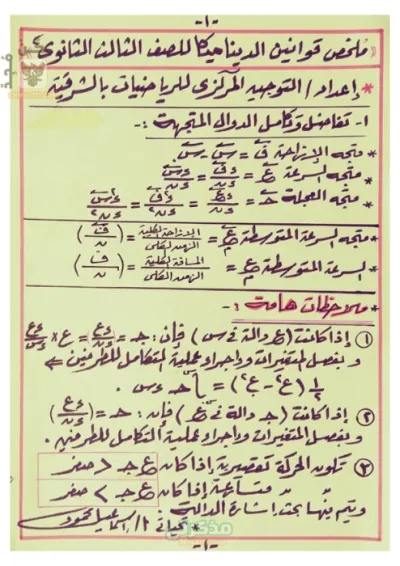 -١-
ملخص قوانين الديناميكا للصف الثالث الثانوى
* إعداد / التوجيه المركزى للرياضيات بالشرقية
١- تفاضل وتكامل الدوال المتجهة :-
* متجه الإزاحة ف = س - س٠
* متجه السرعة ع = ءف/ءن = ءس/ءن
* متجه العجلة جـ = ءع/ءن = ء٢ف/ءن٢ = ء٢س/ءن٢
* متجه السرعة المتوسطة عم = الإزاحة الكلية/الزمن الكلى = (ف/ن)
* السرعة المتوسطة عم = المسافة الكلية/الزمن الكلى = (ف/ن)
* ملاحظات هامة :-
① إذا كانت (ع دالة فى س) فإن : جـ = ءع/ءن = ع × ءع/ءس
وبفصل المتغيرات وإجراء عملية التكامل للطرفين ⇐
١/٢ (ع٢ - ع٠٢) = ∫ جـ ءس .
② إذا كانت (جـ دالة فى ع) فإن : جـ = (ءع/ءن)
وبفصل المتغيرات وإجراء عملية التكامل للطرفين .
③ تكون الحركة تقصيرية إذا كان ع جـ < صفر
" " متسارعة إذا كان ع جـ > صفر
ويتم بحث إشارة الدالة
* تحياتى أ/ إسماعيل محمود
مذكرتى
-١-